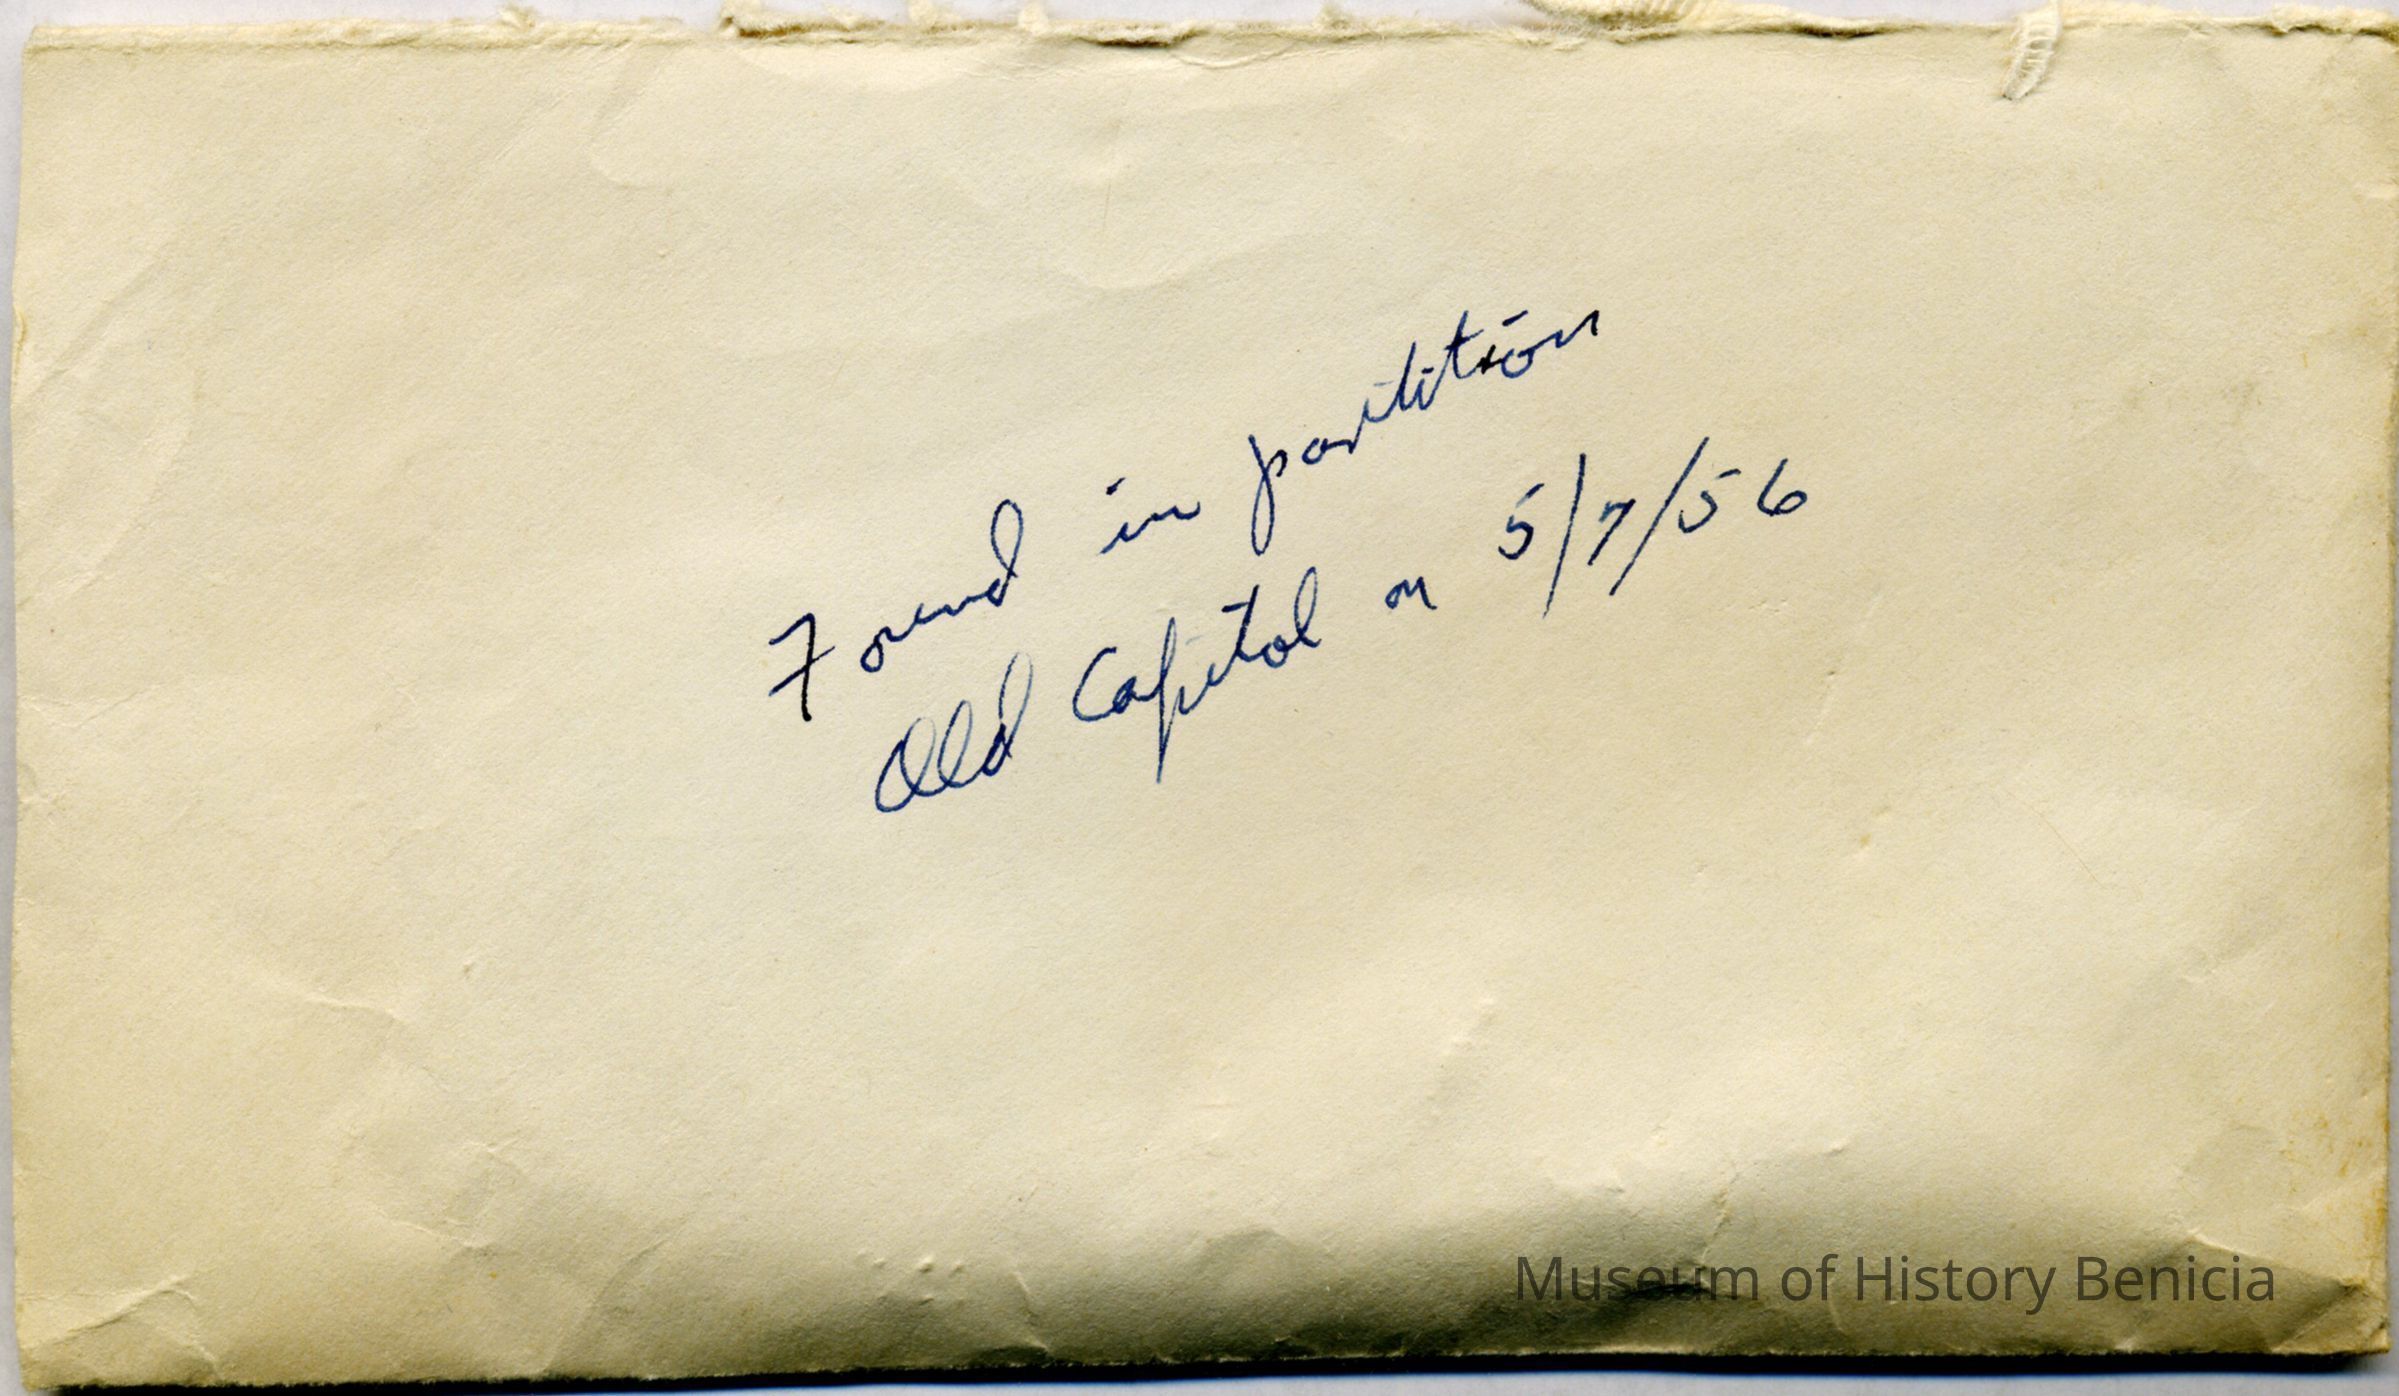 Found in partition
Old Capitol on 5/7/56
Museum of History Benicia